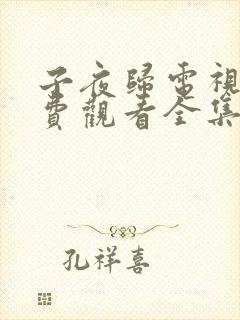 子夜歸電視
費觀看全集
孔祥喜